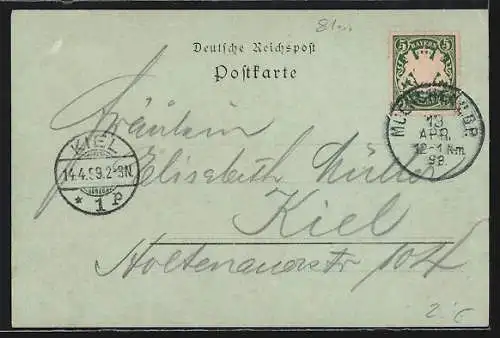 Deutsche Reichspost
Postkarte
5 BAYERN 5
13
APR.
12-1 Nm
98
KIEL
14.4.99.2-3N.
* 1 P
Fräulein
Elisabeth Müller
Kiel
Holtenauerstr 104